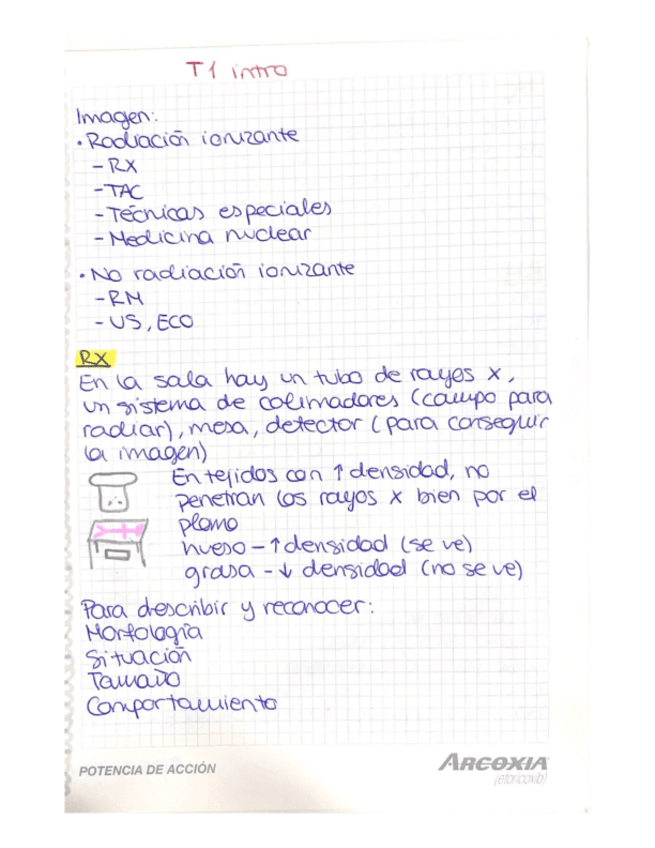 T1 intro
Imagen:
· Radiación ionizante
- RX
- TAC
- Técnicas especiales
- Medicina nuclear
· No radiación ionizante
- RM
- US, ECO
RX
En la sala hay un tubo de rayos x,
un sistema de colimadores (campo para
radiar), mesa, detector (para conseguir
la imagen)
En tejidos con ↑ densidad, no
penetran los rayos x bien por el
plomo
hueso - ↑ densidad (se ve)
grasa - ↓ densidad (no se ve)
Para describir y reconocer:
Morfología
Situación
Tamaño
Comportamiento
POTENCIA DE ACCIÓN
ARCOXIA
(etoricoxib)